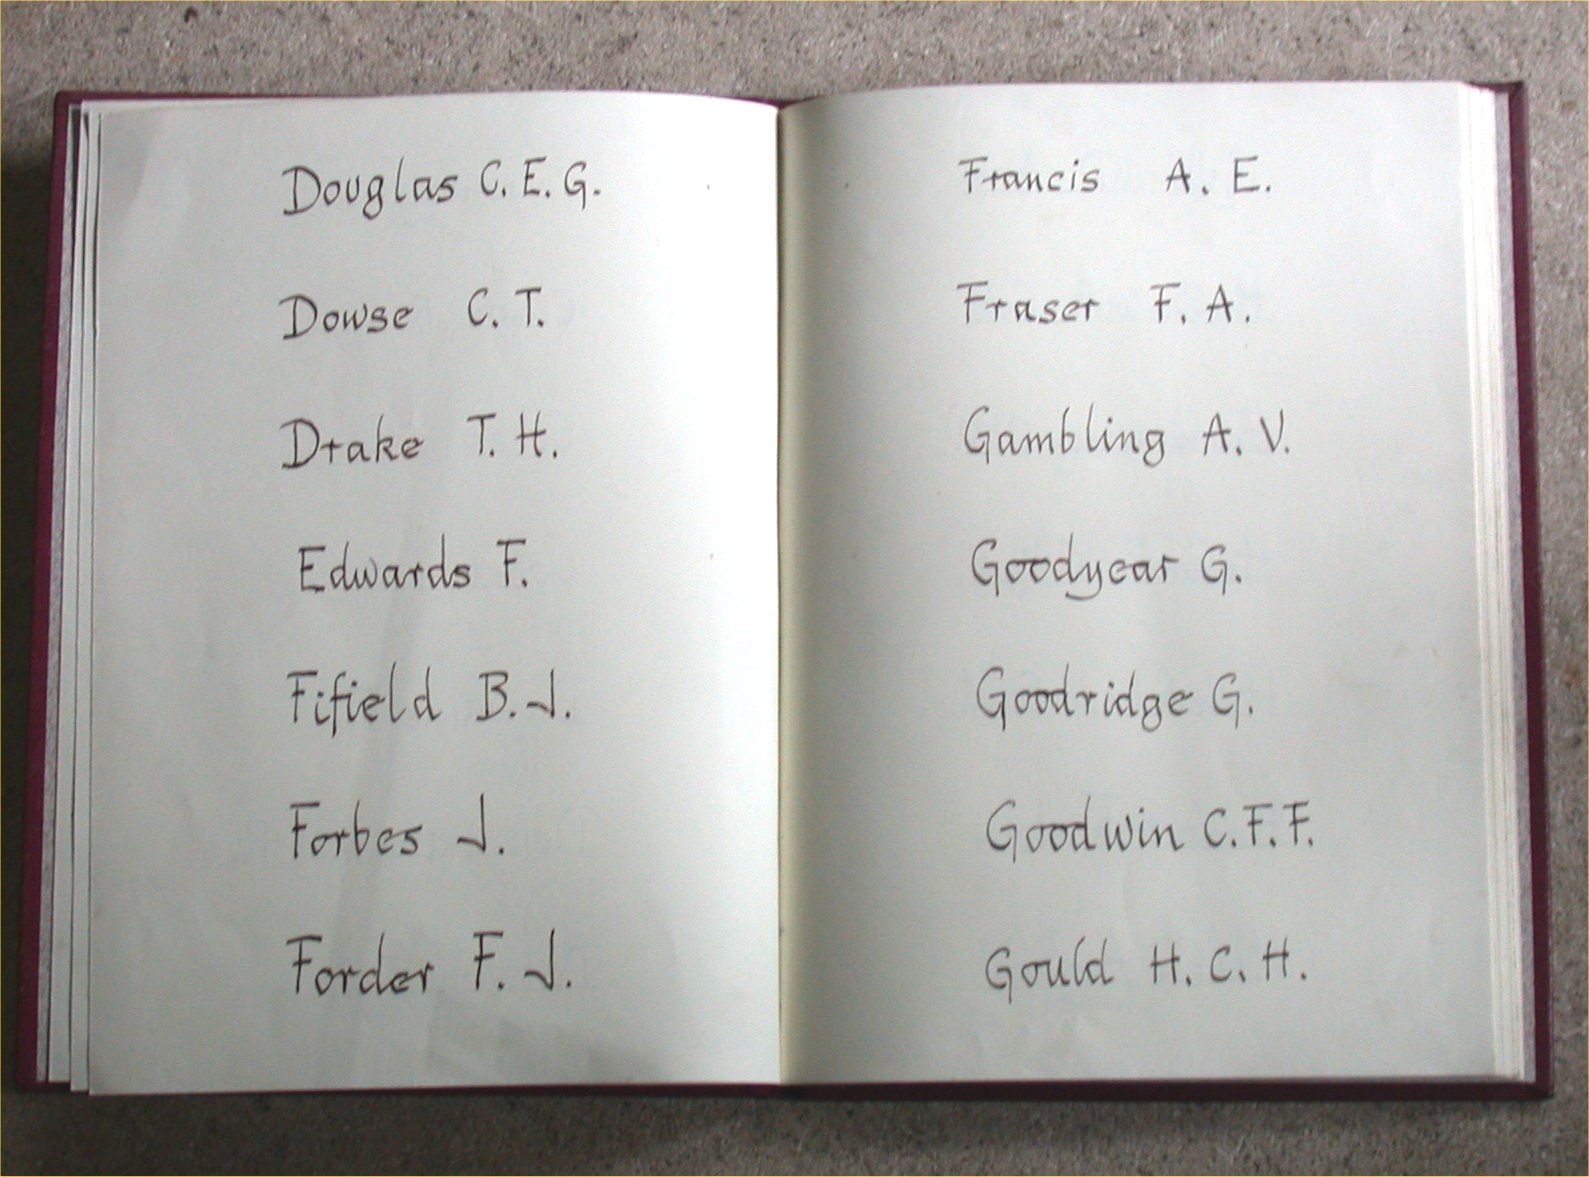 Douglas C. E. G.
Dowse C. T.
Drake T. H.
Edwards F.
Fifield B. J.
Forbes J.
Forder F. J.
Francis A. E.
Fraser F. A.
Gambling A. V.
Goodyear G.
Goodridge G.
Goodwin C. F. F.
Gould H. C. H.